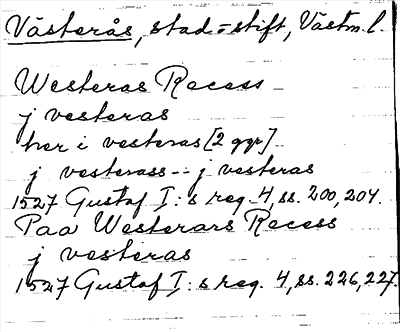 Västerås, stad o. stift, Västm. l.
Westeras Recess
j vesteras
her i vesteras [2 ggr]
j vesterass -- j vesteras
1527 Gustaf I:s reg. 4, ss. 200, 204.
Paa Westerars Recess
j vesteras
1527 Gustaf I:s reg. 4, ss. 226, 227.